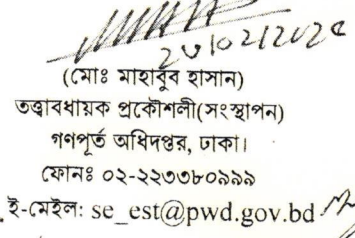 (মোঃ মাহাবুব হাসান)
তত্ত্বাবধায়ক প্রকৌশলী(সংস্থাপন)
গণপূর্ত অধিদপ্তর, ঢাকা।
ফোনঃ ০২-২২৩৩৮০৯৯৯
ই-মেইল: se_est@pwd.gov.bd